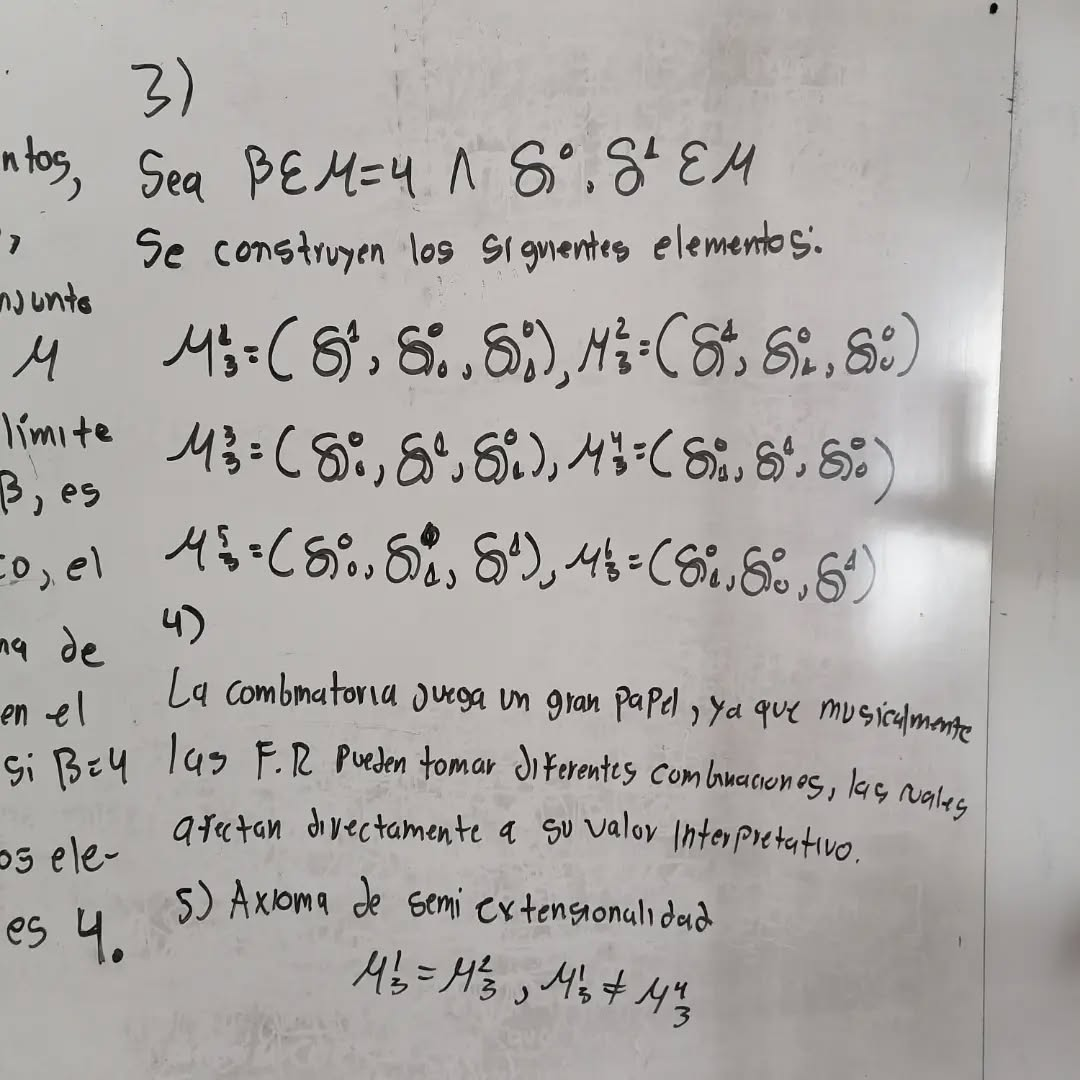 ntos,
njunto
M
límite
β, es
co, el
ma de
en el
si β=4
os ele-
es 4.
3)
Sea β Ɛ M=4 ∧ 𝛿⁰, 𝛿¹ Ɛ M
Se construyen los siguientes elementos:
M₃¹=(𝛿¹, 𝛿₀⁰, 𝛿₁⁰), M₃²=(𝛿¹, 𝛿₁⁰, 𝛿₀⁰)
M₃³=(𝛿₀⁰, 𝛿¹, 𝛿₁⁰), M₃⁴=(𝛿₁⁰, 𝛿¹, 𝛿₀⁰)
M₃⁵=(𝛿₀⁰, 𝛿₁⁰, 𝛿¹), M₃⁶=(𝛿₁⁰, 𝛿₀⁰, 𝛿¹)
4)
La combinatoria juega un gran papel, ya que musicalmente
las F.R pueden tomar diferentes combinaciones, las cuales
afectan directamente a su valor interpretativo.
5) Axioma de semi extensionalidad
M₃¹ = M₃², M₃¹ ≠ M₃⁴